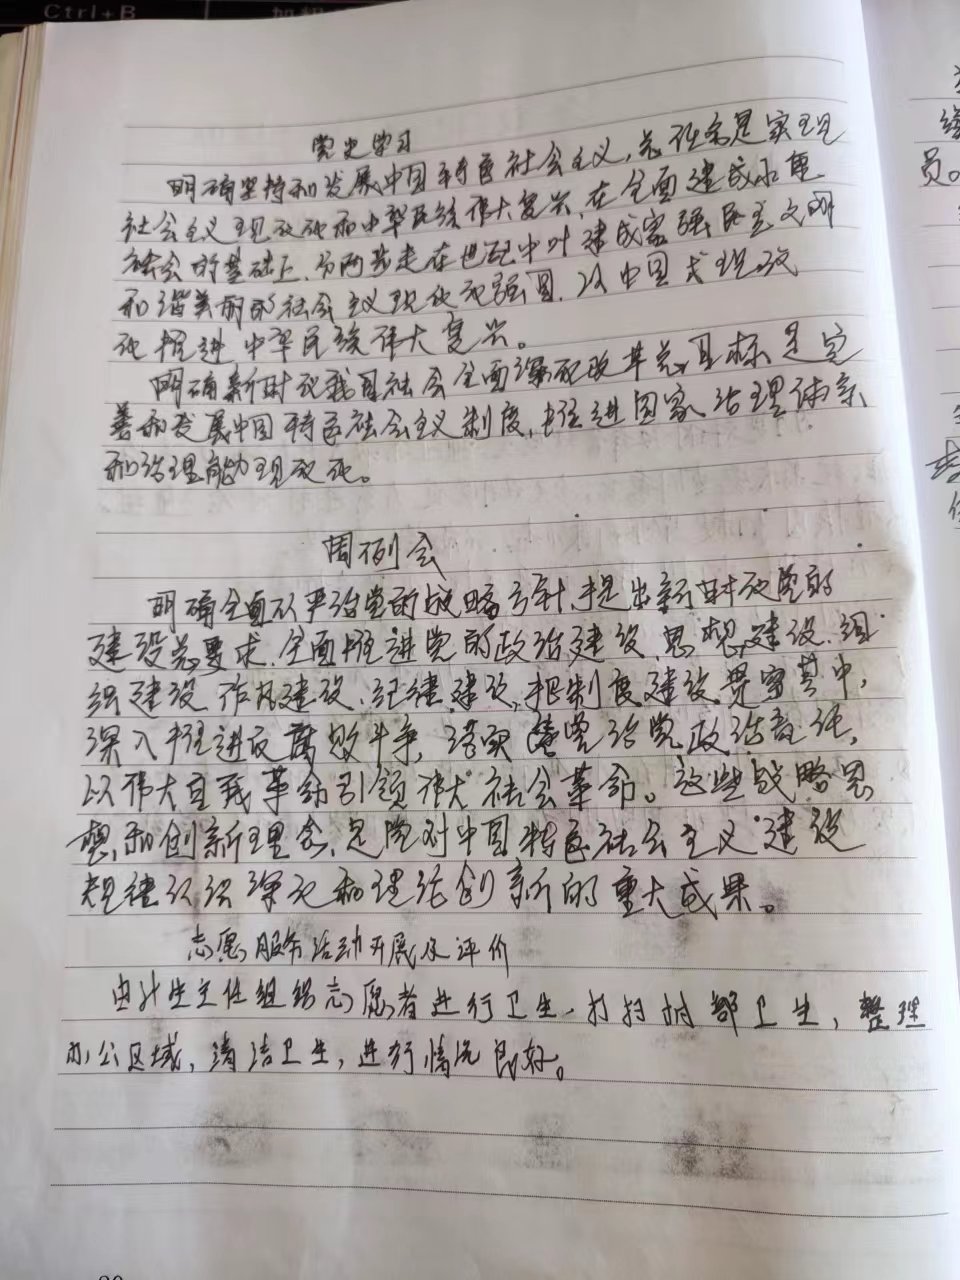 Ctrl+B
党史学习
明确坚持和发展中国特色社会主义,总任务是实现
社会主义现代化和中华民族伟大复兴,在全面建成小康
社会的基础上,分两步走在世纪中叶建成富强民主文明
和谐美丽的社会主义现代化强国,以中国式现代
化推进中华民族伟大复兴。
明确新时代我国社会全面深化改革总目标是完
善和发展中国特色社会主义制度,推进国家治理体系
和治理能力现代化。
周例会
明确全面从严治党的战略方针,提出新时代党的
建设总要求,全面推进党的政治建设、思想建设、组
织建设、作风建设、纪律建设,把制度建设贯穿其中,
深入推进反腐败斗争,落实管党治党政治责任,
以伟大自我革命引领伟大社会革命。这些战略思
想和创新理念,是党对中国特色社会主义建设
规律认识深化和理论创新的重大成果。
志愿服务活动开展及评价
由计生主任组织志愿者进行卫生,打扫村部卫生,整理
办公区域,清洁卫生,进行情况良好。
员。